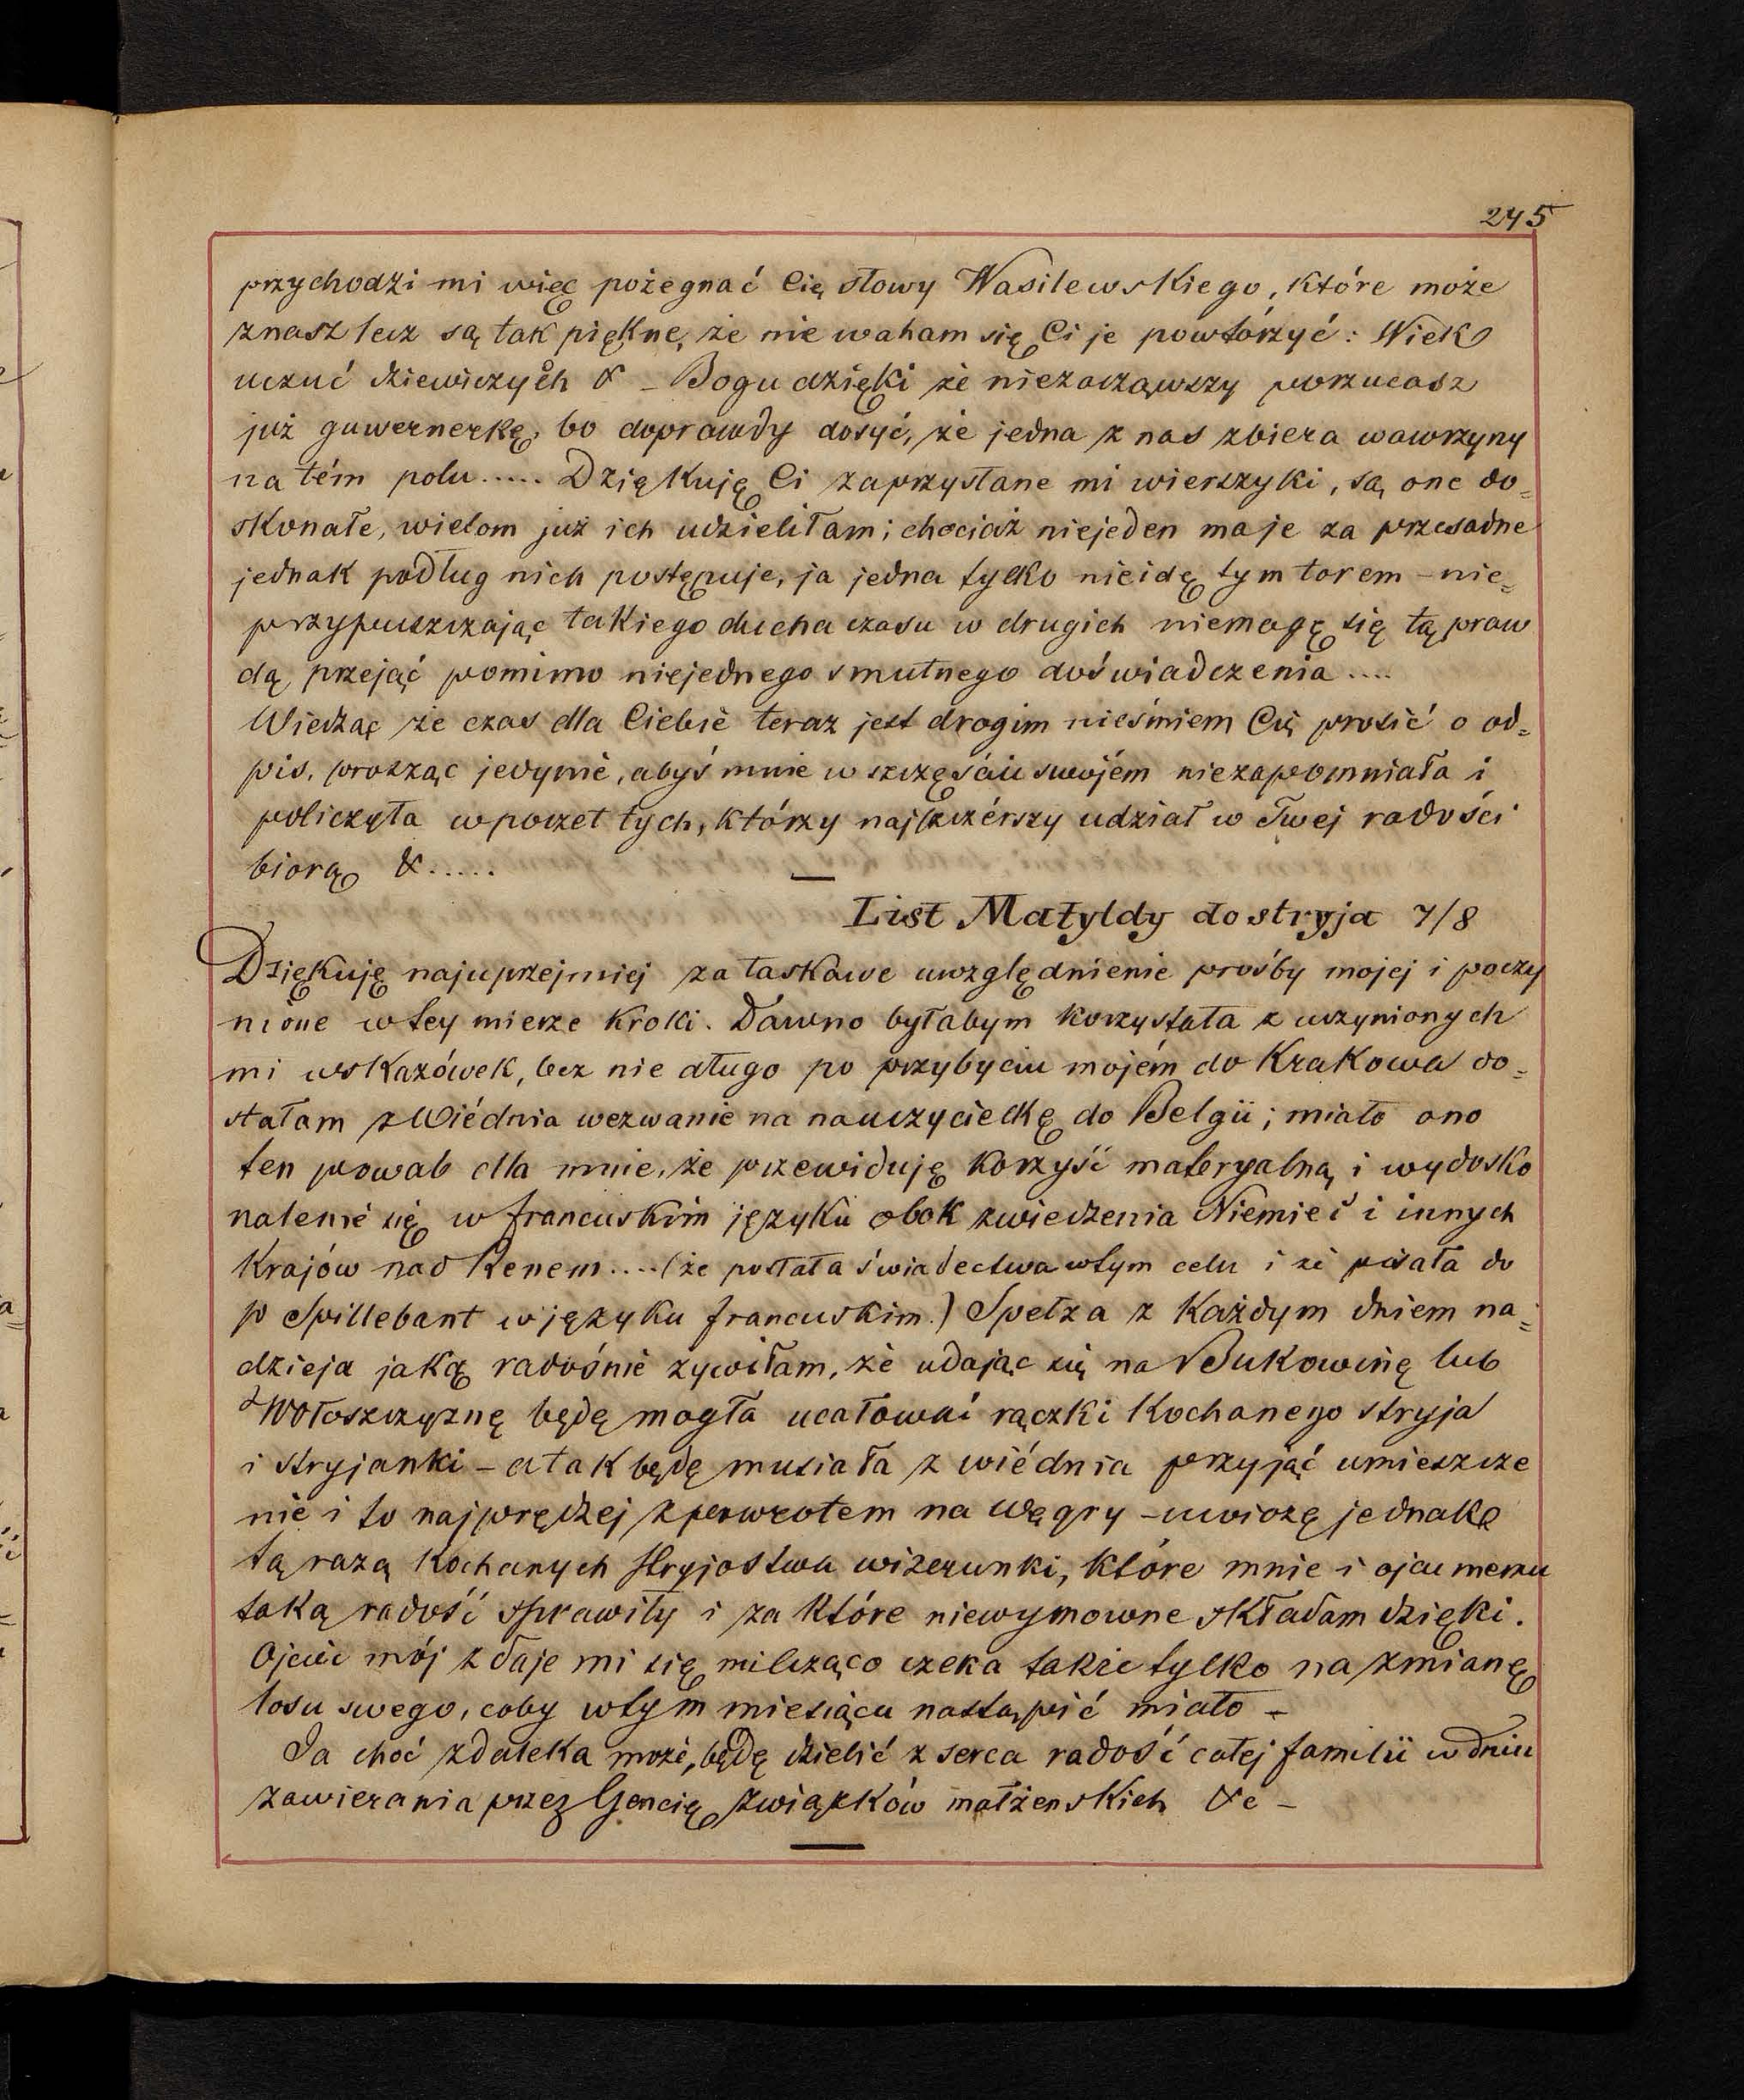 245
przychodzi mi więc pożegnać Cię słowy Wasilewskiego, które może
znasz lecz są tak piękne, że nie waham się Ci je powtórzyć: Wiek
uczuć dziewiczych & – Bogu dzięki że niezacząwszy porzucasz
już guwernerkę, bo doprawdy dosyć, że jedna z nas zbiera wawrzyny
na tém polu..... Dziękuję Ci za przysłane mi wierszyki, są one do=
skonałe, wielom już ich udzieliłam; chociaż niejeden ma je za przesadne
jednak podług nich postępuje, ja jedna tylko nieidę tym torem – nie=
przypuszczając takiego ducha czasu w drugich niemogę się tą praw
dą przejąć pomimo niejednego smutnego doświadczenia ....
Wiedząc że czas dla Ciebie teraz jest drogim nieśmiem Cię prosić o od=
pis, prosząc jedynie, abyś mnie w szczęściu swojém niezapomniała i
policzyła w poczet tych, którzy najszczérszy udział w Twej radości
biorą &.....
List Matyldy do stryja 7/8
Dziękuję najuprzejmiej za łaskawe uwzględnienie prośby mojej i poczy
nione w tey mierze kroki. Dawno byłabym korzystała z uczynionych
mi wskazówek, lecz nie długo po przybyciu mojém do Krakowa do=
stałam z Wiédnia wezwanie na nauczycielkę do Belgii; miało ono
ten powab dla mnie, że przewiduję korzyść materyalną i wydosko
nalenie się w francuskim języku obok zwiedzenia Niemiec i innych
krajów nad Renem....(że posłała świadectwa w tym celu i że pisała do
p Spillebant w języku francuskim.) Spełza z każdym dniem na=
dzieja jaką radośnie żywiłam, że udając się na Bukowinę lub
Wołoszczyznę będę mogła ucałować rączki kochanego stryja
i stryjanki – a tak będę musiała z wiédnia przyjąć umieszcze
nie i to najprędzej z powrotem na Węgry – uwiozę jednak
tą razą kochanych stryjostwa wizerunki, które mnie i ojcu memu
taką radość sprawiły i za które niewymowne składam dzięki.
Ojciec mój zdaje mi się milcząco czeka także tylko na zmianę
losu swego, coby w tym miesiącu nastąpić miało –
Ja choć zdaleka może, będę dzielić z serca radość całej familii w dniu
zawierania przez Gencię związków małżenskich &c –